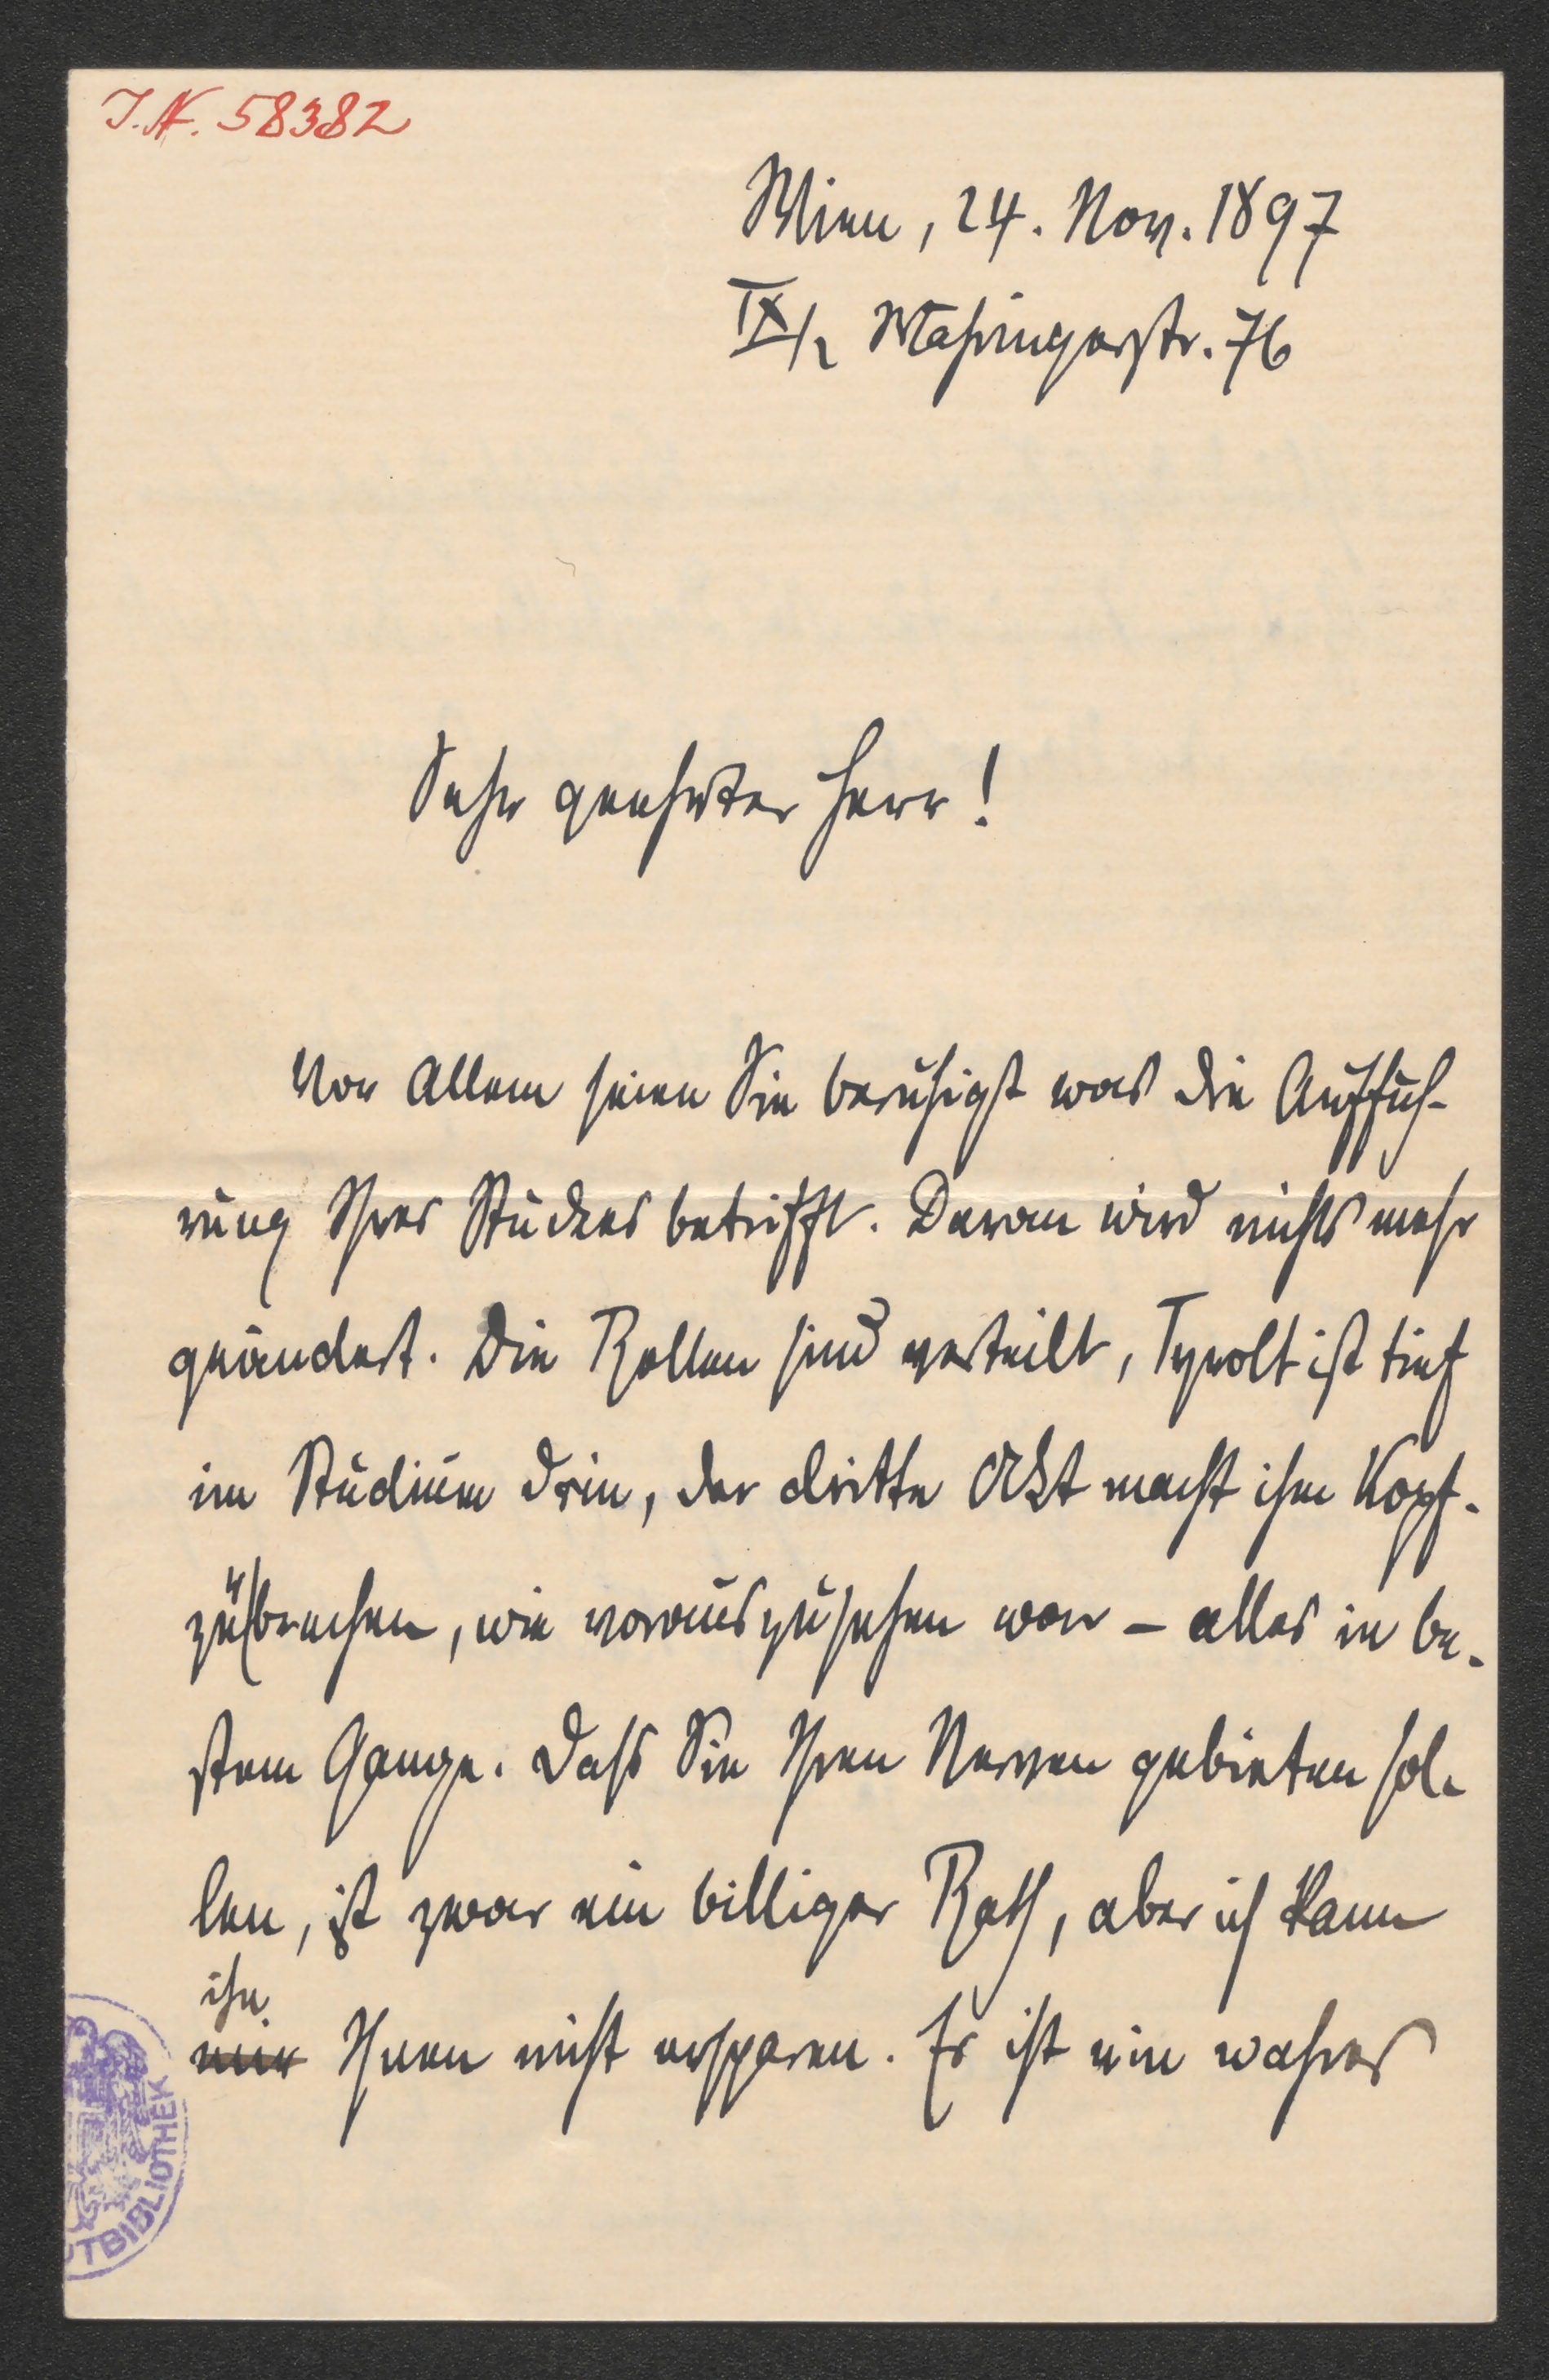 J.N. 58382
Wien, 24. Nov. 1897
IX/2 Währingerstr. 76
Sehr geehrter Herr!
Vor Allem seien Sie beruhigt was die Auffüh-
rung Ihres Stückes betrifft. Daran wird nichts mehr
geändert. Die Rollen sind verteilt, Tyrolt ist tief
im Studium drin, der dritte Akt macht ihm Kopf-
zerbrechen, wie vorauszusehen war – alles in be-
stem Gange. Dass Sie Ihren Nerven gebieten sol-
len, ist zwar ein billiger Rath, aber ich kann
ihn
mir Ihnen nicht ersparen. Es ist ein wahres
TBIBLIOTHEK